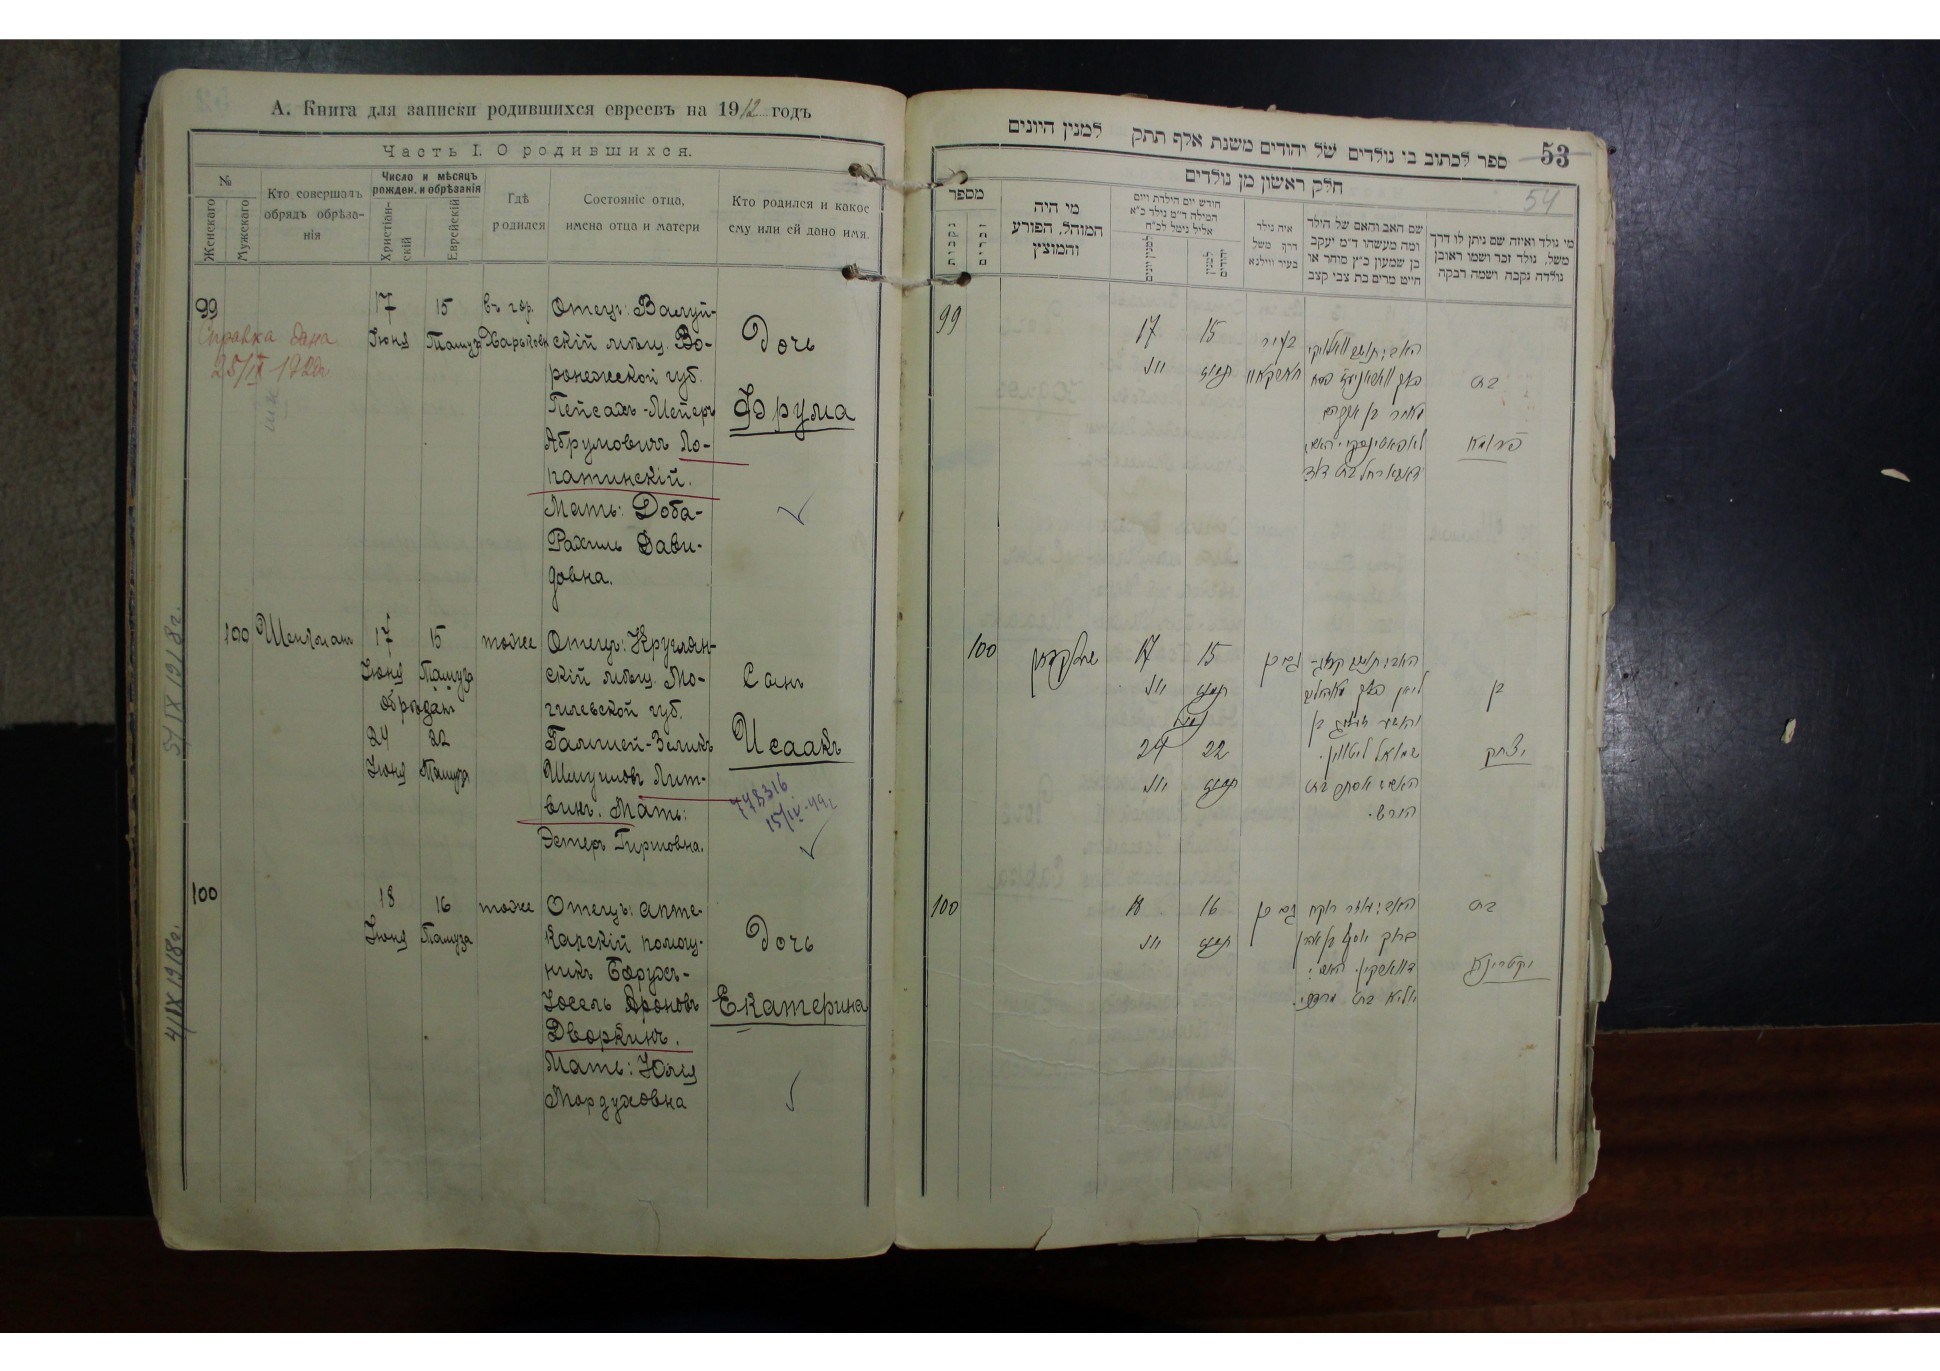 А. Книга для записки родившихся евреевъ на 1912 годъ
Часть I. О родившихся.
№
Женскаго
Мужескаго
Кто совершалъ
обрядъ обрѣза-
нія
Число и мѣсяцъ
рожден. и обрѣзанія
Христіан-
скій
Еврейскій
Гдѣ
родился
Состояніе отца,
имена отца и матери
Кто родился и какое
ему или ей дано имя.
99
Справка дана
25/IX
17
Іюня
15
Тамуза
въ гор.
Харьковѣ
Отецъ: Валуй-
скій мѣщ. Во-
ронежской губ.
Пейсахъ-Мейеръ
Абрумовичъ Ло-
патинскій.
Мать: Доба-
Рахиль Дави-
довна.
Дочь
Фрума
100
17
Іюня
обрѣзанъ
24
Іюня
15
Тамуза
22
Тамуза
тоже
Отецъ: Круглян-
скій мѣщ. Мо-
гилевской губ.
Зеликъ
Шмуиловъ Лит-
винъ. Мать:
Эстеръ Гиршовна.
Сынъ
Исаакъ
15/IV-49г
100
18
Іюня
16
Тамуза
тоже
Отецъ: апте-
карскій помощ-
никъ Борухъ-
Іосель Ароновъ
Дворкинъ.
Мать: Юлія
Мордуховна
Дочь
Екатерина
3/IX 1918г.
4/IX 1918г.
53
54
ספר לכתוב בי נולדים של יהודים משנת אלף תתק למנין היונים
חלק ראשון מן נולדים
מספר
נקבות
זכרים
מי היה
המוהל, הפורע
והמוצץ
חודש יום הילדת ויום
המילה ד"מ נולד כ"א
אליל נימל לכ"ח
למנין יונים
למנין
יהודים
איה נולד
דרך משל
בעיר ווילנא
שם האב והאם של הילד
ומה מעשהו ד"מ יעקב
בן שמעון כ"ץ סוחר או
חייט מרים בת צבי קצב
מי נולד ואיזה שם ניתן לו דרך
משל, נולד זכר ושמו ראובן
נולדה נקבה ושמה רבקה
99
17
יוני
15
תמוז
בעיר
בת
פרומא
100
17
יוני
24
יוני
15
תמוז
22
תמוז
גם כן
שמואל ליטווין.
האם: אסתר בת
הירש.
בן
יצחק
100
18
יוני
16
תמוז
גם כן
ברוך יוסף בן אהרן
דווארקין. האם:
יוליא בת מרדכי.
בת